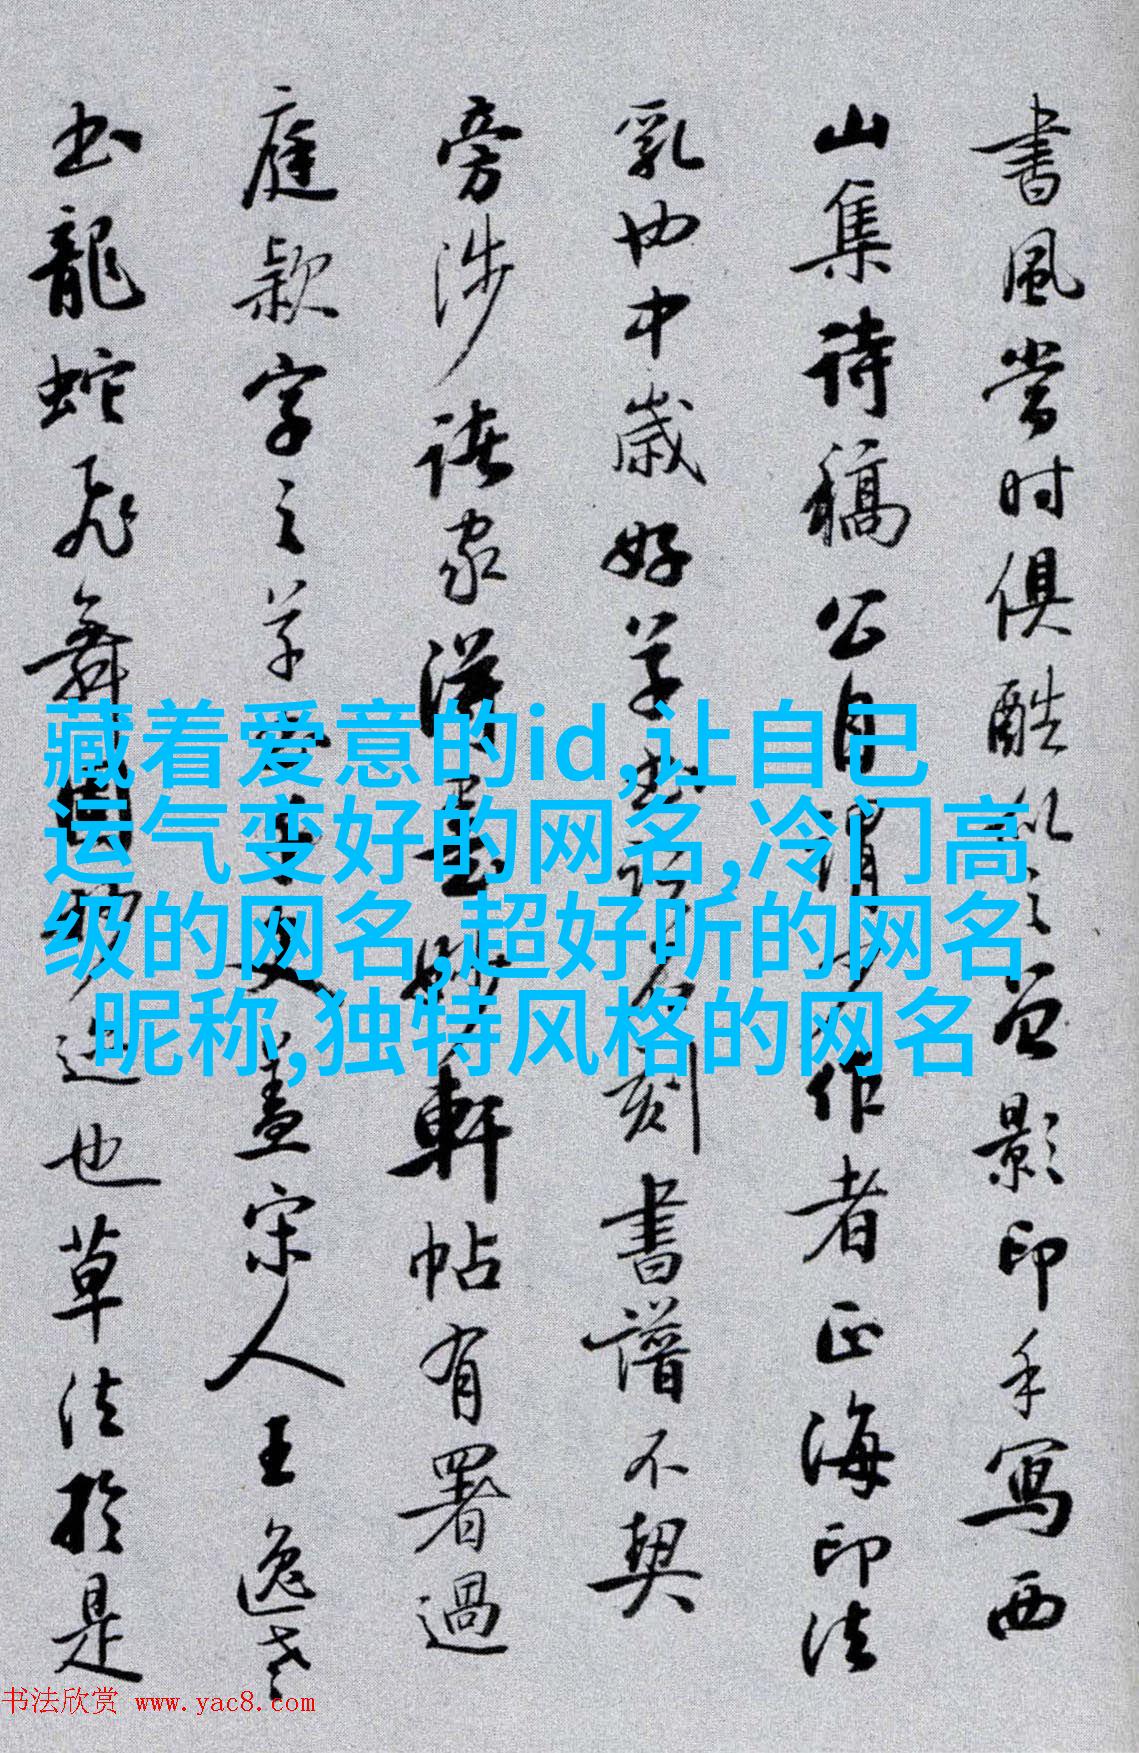 書風當时俱酷似之曾影印手寫西
山集詩稿公自謂
作者正海印法
乳也中歲好草書
刻書譜不契
旁涉諸家漢
軒帖有署過
庭款字之草
蓋宋人王逸老
书龍蛇飛舞
也草法於是
藏着爱意的id,让自己
运气变好的网名,冷门高
级的网名,超好听的网名
昵称,独特风格的网名
书法欣赏 www.yac8.com